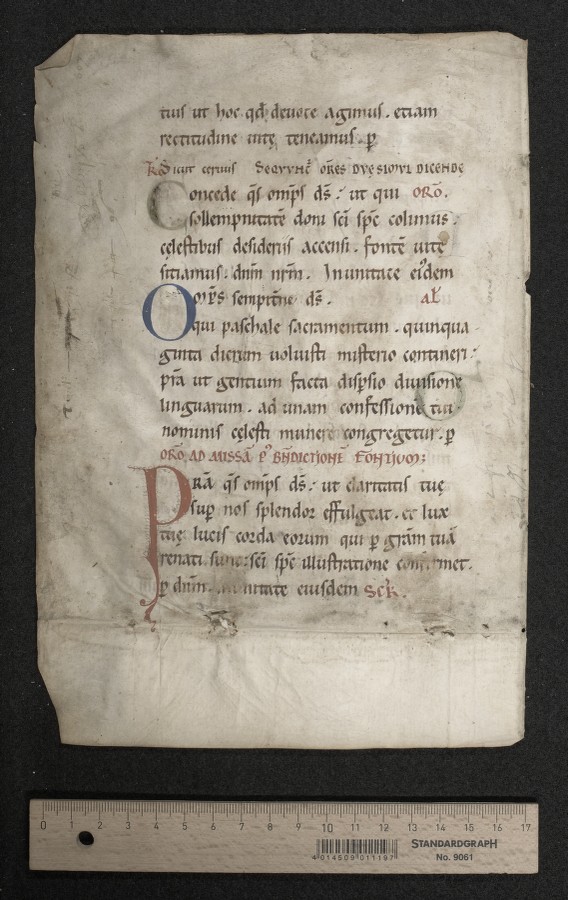 tuis ut hoc qd deuote agimus . etiam
rectitudine uitę teneamus . p
Sicut ceruus Sequunt̄ or̄es duę simul dicende
Concede q̄s om̄ps d̄s : ut qui orō .
sollempnitatē doni sc̄i sp̄c colimus :
cęlestibus desideriis accensi . fontē uitę
sitiamus : dn̄m nr̄m . In unitate ei'dem
Om̄ps sempit̄ne d̄s . al̄
qui paschale sacramentum . quinqua
ginta dierum uoluisti misterio contineri :
p̄ra ut gentium facta disp̄sio diuisione
linguarum . ad unam confessionē tui
nominis cęlesti munere congregetur . p
orō ad missā p' bn̄dictionē fontium :
Prā q̄s om̄ps d̄s : ut claritatis tuę
sup nos splendor effulgeat . et lux
tuę lucis corda eorum qui p grām tuā
renati sunt : sc̄i sp̄c illustratione confirmet .
p dn̄m . unitate eiusdem Scr̄ .
0 1 2 3 4 5 6 7 8 9 10 11 12 13 14 15 16 17
4 014509 011197
STANDARDGRAPH
No. 9061